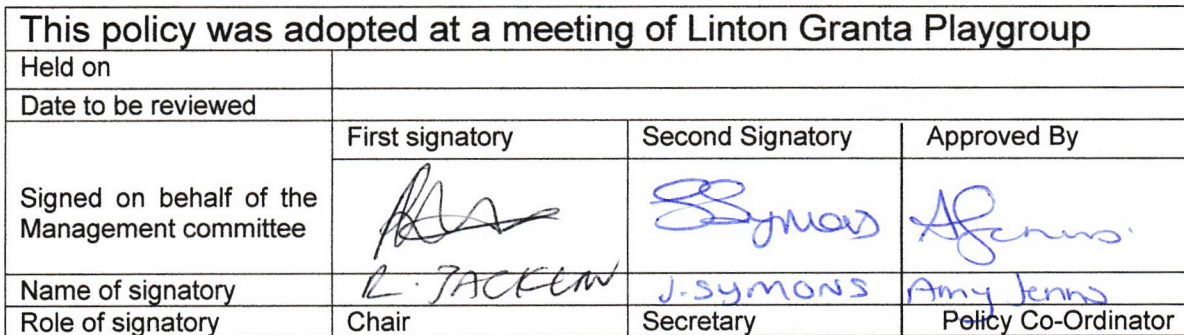 This policy was adopted at a meeting of Linton Granta Playgroup
Held on
Date to be reviewed
First signatory Second Signatory Approved By
Signed on behalf of the
Management committee
SSymons
Name of signatory R. JACKLIN J. SYMONS Amy
Role of signatory Chair Secretary Policy Co-Ordinator